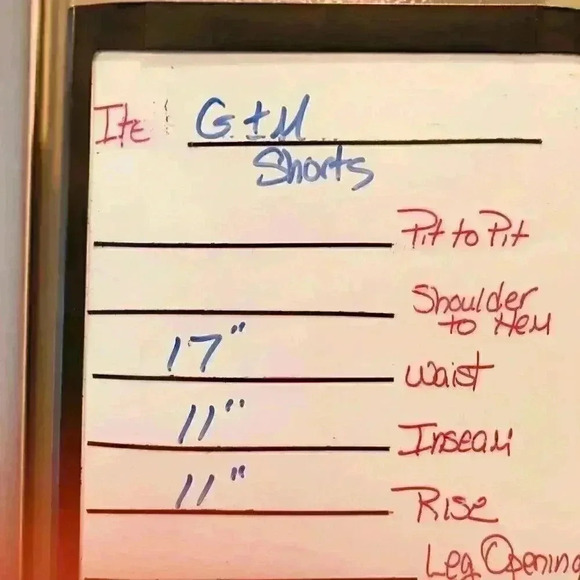 Ite G+M
Shorts
Pit to Pit
Shoulder
to Hem
17" Waist
11" Inseam
11" Rise
Leg Opening